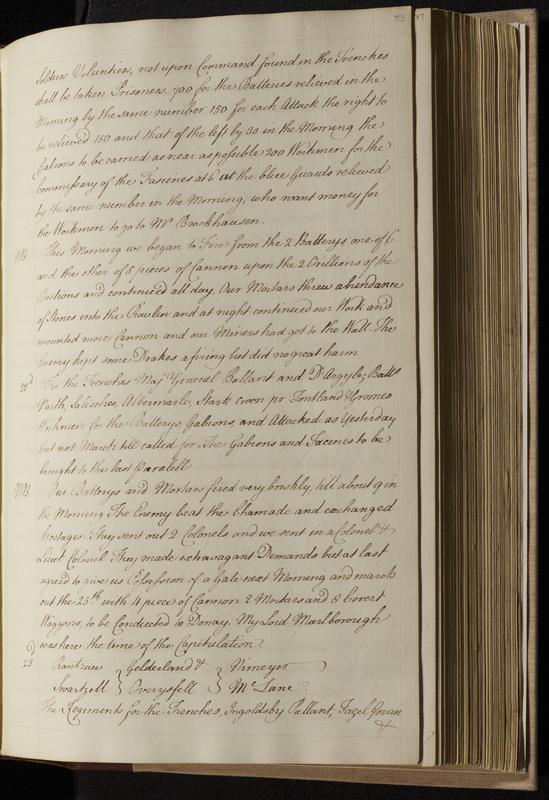 53 27
Soldiers Voluntiers, not upon Command found in the Trenches
shall be taken Prisoners. 700 for the Batteries relieved in the
Morning by the same number 150 for each Attack the right to
be relieved 150 and that of the left by 30 in the Morning the
Gabions to be carried as near as possible 200 Workmen for the
Commissary of the Fascines at 6 at the blue Guards relieved
by the same number in the Morning, who want money for
the Workmen to go to Mr Brockhausen.
NB This Morning we began to Fire from the 2 Batterys one of 6
and the other of 5 pieces of Cannon upon the 2 Orillions of the
Bastions and continued all day. Our Mortars threw abundance
of Stones into the Ravlin and at night continued our Work and
mounted more Cannon and our Miners had got to the Wall. The
Enemy kept some Drakes a firing but did no great harm
22d For the Trenches Maj. General Pallant and D'Argyle; Batts
North, Salisches, Albermarle, Stark Croon po Portland &
Workmen for the Batterys, Gabions, and Attacked as Yesterday
but not March till called for. The Gabions and Facines to be
brought to the last Paralell
NB Our Batterys and Mortars fired very briskly, till about 9 in
the Morning The Enemy beat the Chamade and exchanged
hostages. They sent out 2 Colonels and we sent in a Colonel &
Lieut Colonel They made extravagant Demands but at last
agreed to give us Possession of a Gate next Morning and march
out the 25th with 4 piece of Cannon 2 Mortars and 8 Covert
Waggons, to be Conducted to Douay. My Lord Marlborough
was here the time of the Capitulation.
23 Rantzau } Gelderland & } Nimeyer
Swartzell } Overyssell } McLane
The Regiments for the Trenches, Ingoldsby Pallant, Fagel Govan
&